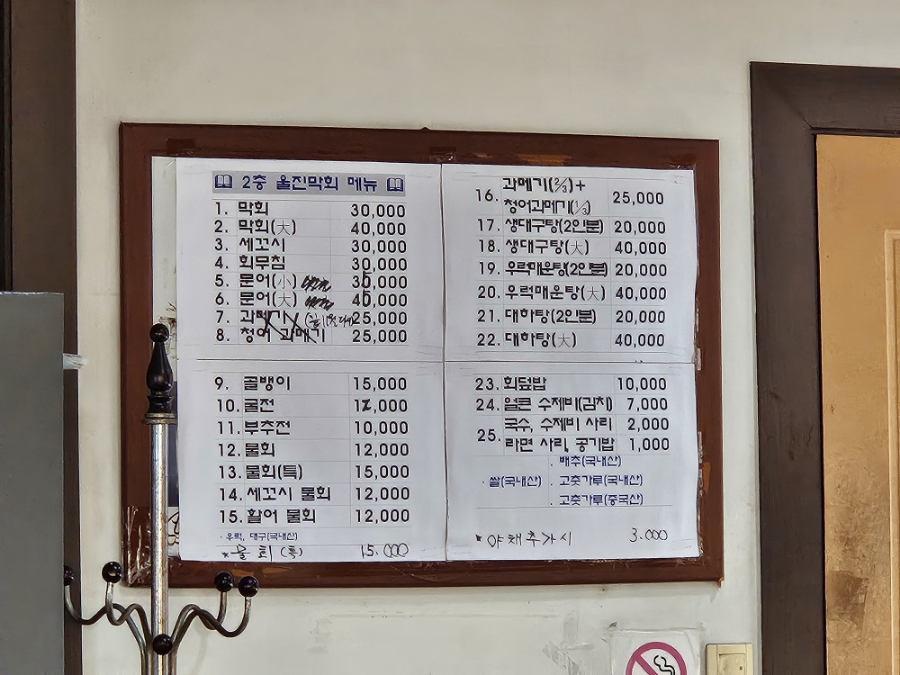 2층 울진막회 메뉴
1. 막회 30,000
2. 막회(大) 40,000
3. 세꼬시 30,000
4. 회무침 30,000
5. 문어(小) 35,000
6. 문어(大) 45,000
7. 과메기 25,000
8. 청어 과메기 25,000
9. 골뱅이 15,000
10. 굴전 12,000
11. 부추전 10,000
12. 물회 12,000
13. 물회(특) 15,000
14. 세꼬시 물회 12,000
15. 활어 물회 12,000
· 우럭, 대구(국내산)
*물회(특) 15.000
16. 과메기(⅔)+
청어과메기(⅓) 25,000
17. 생대구탕(2인분) 20,000
18. 생대구탕(大) 40,000
19. 우럭매운탕(2인분) 20,000
20. 우럭매운탕(大) 40,000
21. 대하탕(2인분) 20,000
22. 대하탕(大) 40,000
23. 회덮밥 10,000
24. 얼큰 수제비(김치) 7,000
25. 국수, 수제비 사리 2,000
라면 사리, 공기밥 1,000
· 배추(국내산)
· 쌀(국내산) · 고춧가루(국내산)
· 고춧가루(중국산)
*야채추가시 3.000